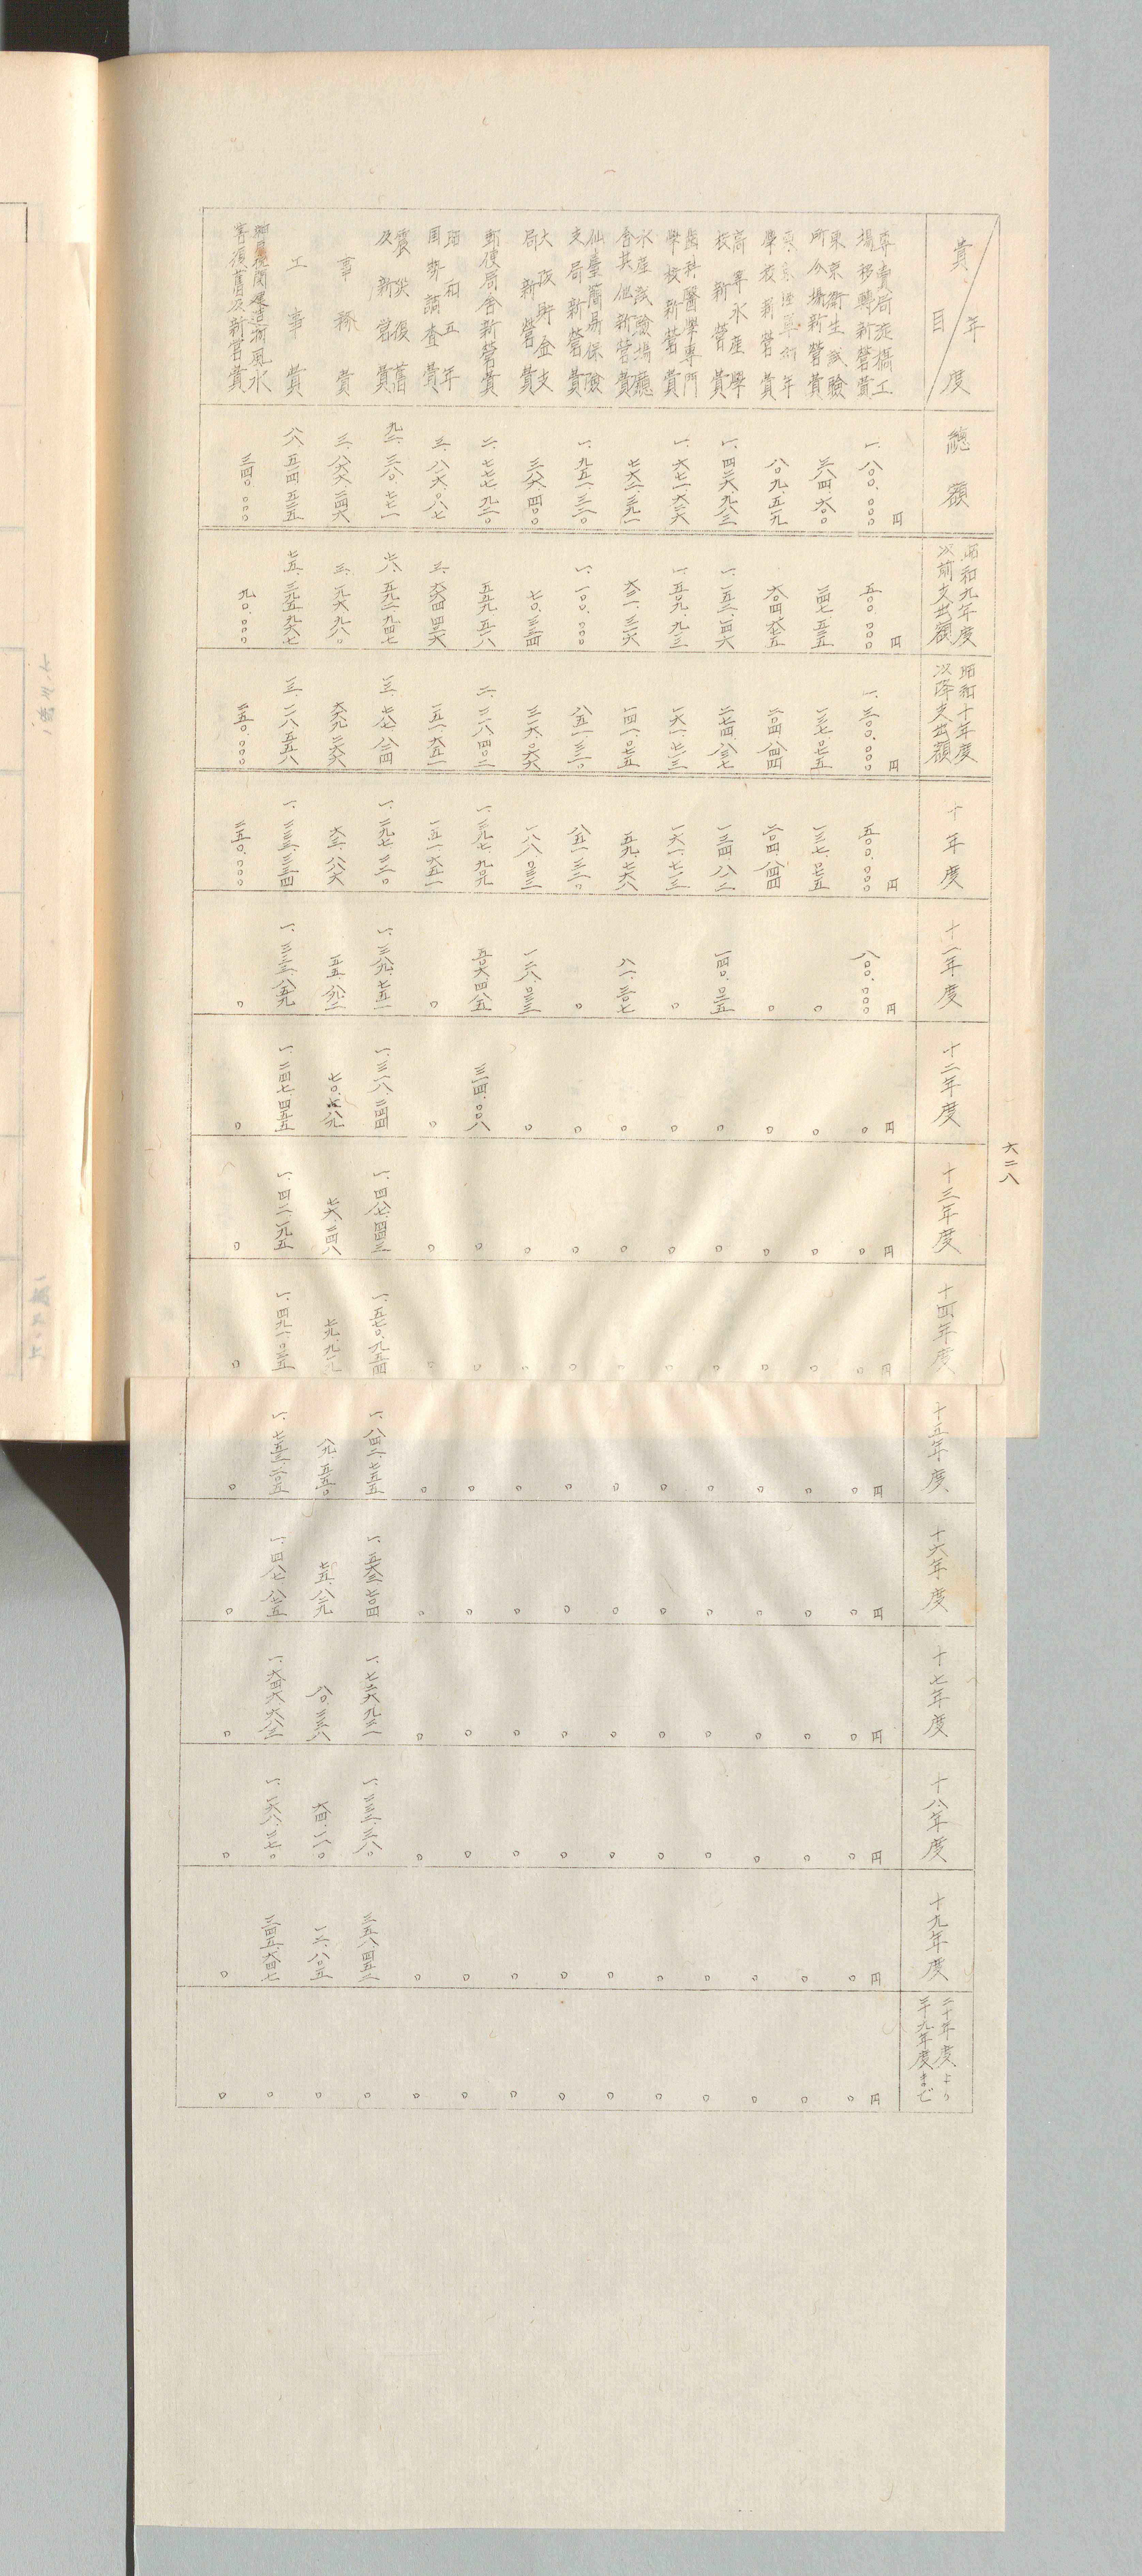 六二八
年度
費目
總額
昭和九年度以前支出額
昭和十年度以降支出額
十年度
十一年度
十二年度
十三年度
十四年度
十五年度
十六年度
十七年度
十八年度
十九年度
二十年度より二十九年度まで
円 円 円 円 円 円 円 円 円 円 円 円 円 円
專賣局淀橋工場移轉新營費 一、八〇〇、〇〇〇 五〇〇、〇〇〇 一、三〇〇、〇〇〇 五〇〇、〇〇〇 八〇〇、〇〇〇 〇 〇 〇 〇 〇 〇 〇 〇 〇
東京衛生試驗所分場新營費 三八四、六〇〇 二四七、五二五 一三七、〇七五 一三七、〇七五 〇 〇 〇 〇 〇 〇 〇 〇 〇 〇
東京陸軍幼年學校新營費 八〇九、五一九 六〇四、六七五 二〇四、八四四 二〇四、八四四 〇 〇 〇 〇 〇 〇 〇 〇 〇 〇
高等水産學校新營費 一、四二六、九八三 一、一五二、一四六 二七四、八三七 一三四、八一二 一四〇、〇二五 〇 〇 〇 〇 〇 〇 〇 〇 〇
齒科醫學專門學校新營費 一、六七一、六二六 一、五〇九、九一三 一六一、七一三 一六一、七一三 〇 〇 〇 〇 〇 〇 〇 〇 〇 〇
水産試驗場廳舍其他新營費 七六二、三九一 六二一、三一六 一四一、〇七五 五九、七六八 八一、三〇七 〇 〇 〇 〇 〇 〇 〇 〇 〇
仙臺簡易保險支局新營費 一、九五一、三二〇 一、一〇〇、〇〇〇 八五一、三二〇 八五一、三二〇 〇 〇 〇 〇 〇 〇 〇 〇 〇 〇
大阪貯金支局新營費 三八六、四〇〇 七〇、三三四 三一六、〇六六 一八八、〇三三 一二八、〇三三 〇 〇 〇 〇 〇 〇 〇 〇 〇
郵便局舍新營費 二、七七七、九二〇 五五九、五一八 二、二一八、四〇二 一、三九七、九〇九 五〇六、四八五 三一四、〇〇八 〇 〇 〇 〇 〇 〇 〇 〇
昭和五年国勢調査費 三、八一六、〇八七 三、六六四、四三六 一五一、六五一 一五一、六五一 〇 〇 〇 〇 〇 〇 〇 〇 〇 〇
震災復舊及新營費 九二、三八〇、七七一 七八、五九二、九四七 一三、七八七、八二四 一、二九七、二二〇 一、三八九、七五一 一、三一八、二四四 一、四八七、四四三 一、五七〇、九五四 一、八四二、七五五 一、五六三、七〇四 一、七二六、九二一 一、二三二、三八〇 三五八、四五二 〇
事務費 三、八六六、二四六 三、一九六、九八〇 六六九、二六六 六三、八八六 五五、八九二 七〇、七八九 七六、二四八 七九、九一九 八九、五五〇 七五、八二九 八〇、二三八 六四、一一〇 一二、八〇五 〇
工事費 八八、五一四、五二五 七五、三九五、九六七 一三、一一八、五五八 一、二三三、三三四 一、三三三、八五九 一、二四七、四五五 一、四一一、一九五 一、四九一、〇三五 一、七五三、二〇五 一、四八七、八七五 一、六四六、六八三 一、一六八、二七〇 三四五、六四七 〇
神戸税関建造物風水害復舊及新營費 三四〇、〇〇〇 九〇、〇〇〇 二五〇、〇〇〇 二五〇、〇〇〇 〇 〇 〇 〇 〇 〇 〇 〇 〇 〇